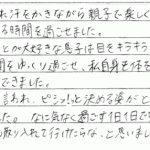 れ汗をかきながら親子で楽しく
る時間を過ごせました。
とが大好きな息子は目をキラキラ
間をゆっくり過ごし、私自身も体を
できました。
言われ、ピシッ!と決める姿がと
した。 なに気なく過ごす1日1日で
も取り入れて行けたらな、と思いまし